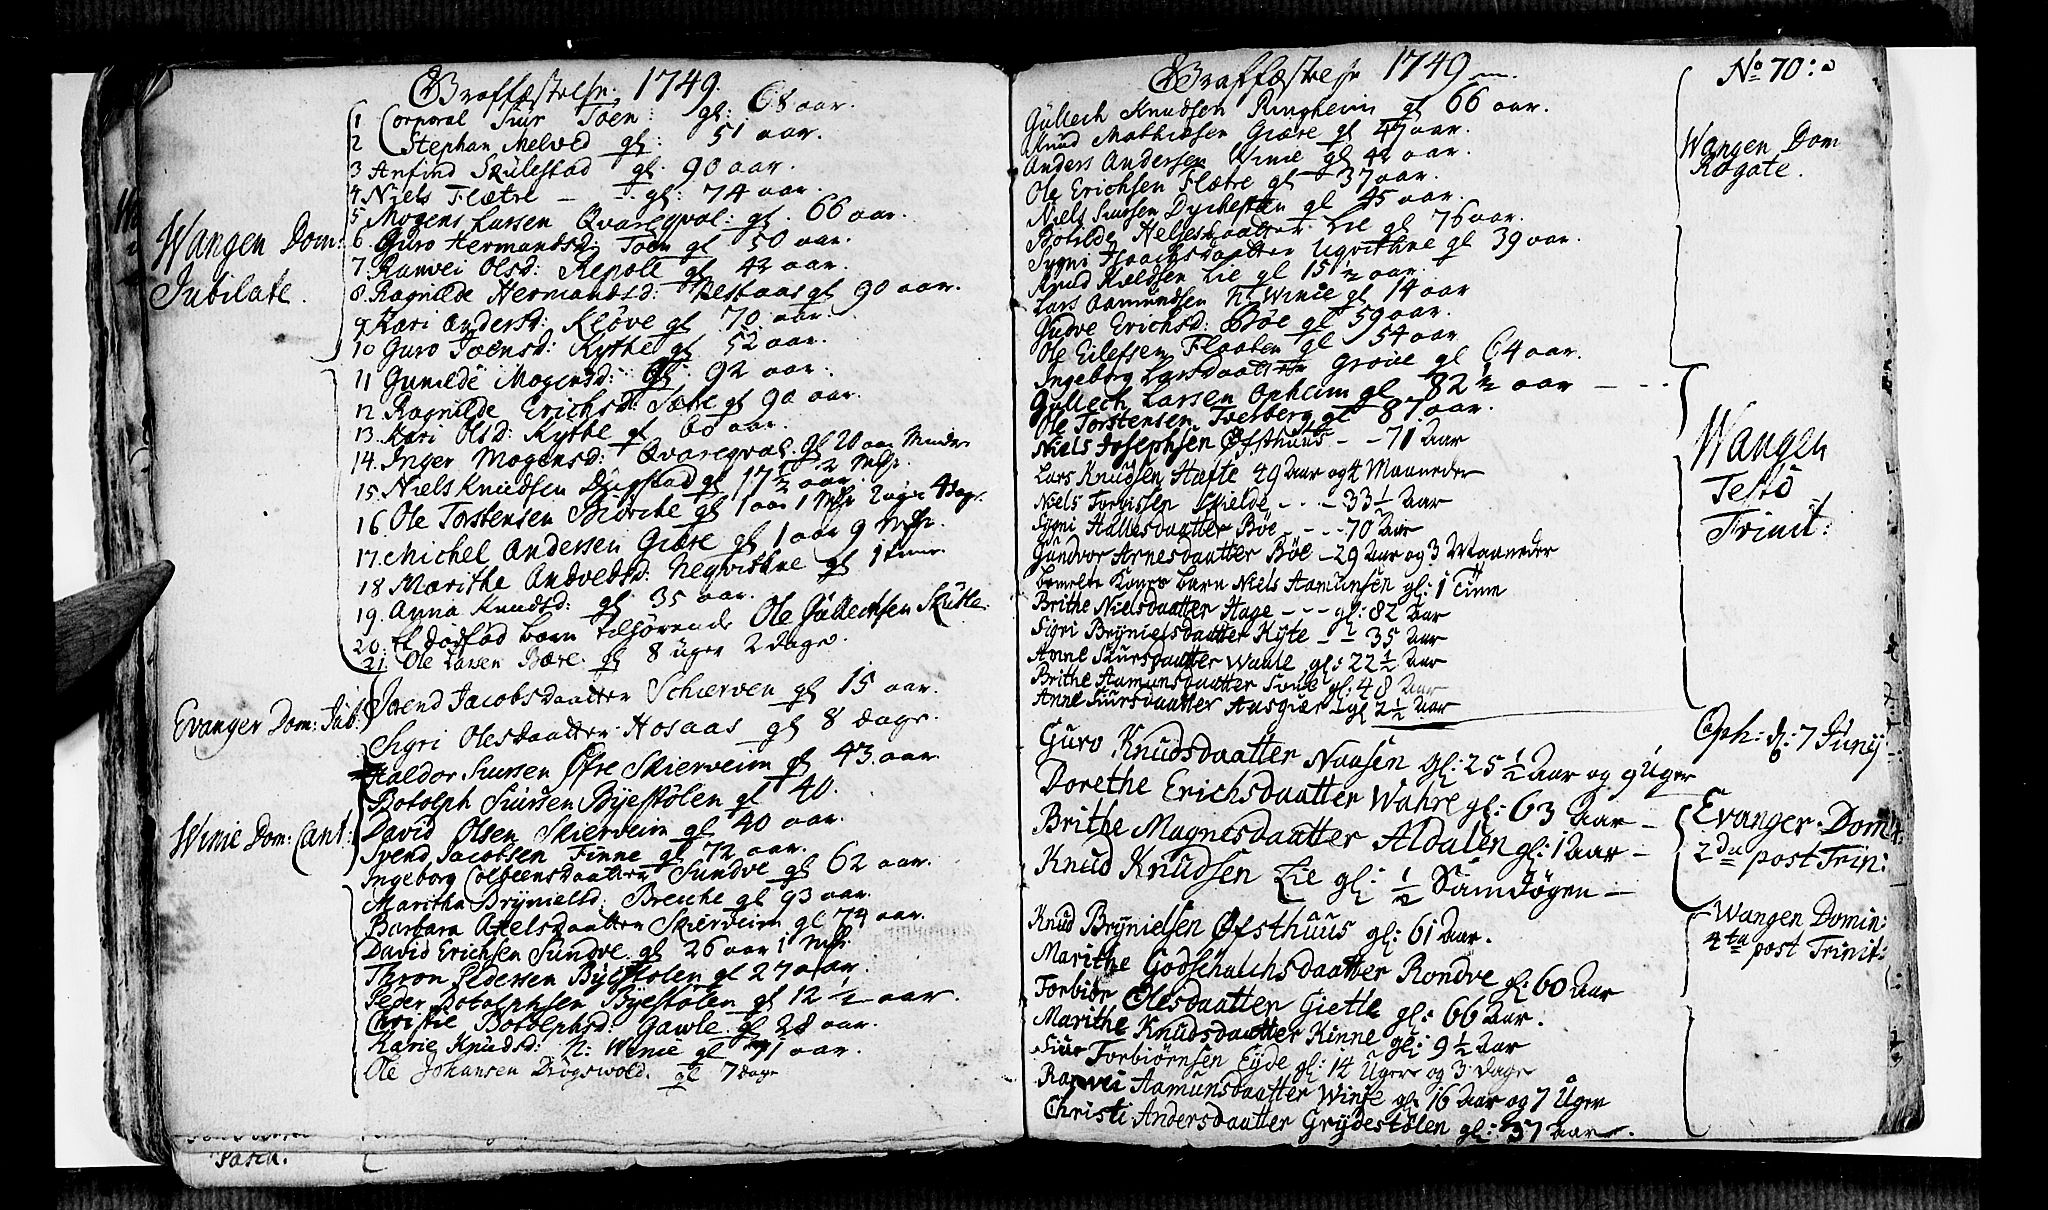 Graffæstelse. 1749.
1 Corporal Siur Toen: gl: 68 aar.
2 Stephan Melved gl: 51 aar.
3 Anfind Skulestad gl. 90 aar.
4 Niels Flætre - gl: 74 aar.
5 Mogens Larsen Qvareqval: gl. 66 aar.
Wangen Dom:
Jubilate.
6 Guro Hermandsd: Toen gl 50 aar.
7 Ranvei Olsd: Repole gl 42 aar.
8 Ragnilde Hermandsd: gl 90 aar.
9 Kari Andersd: Kløve gl 70 aar.
10 Guro Joensd: Kythe gl 52 aar.
11 Gunilde Mogensd: gl: 92 aar.
12 Ragnilde Erichsd: Sætre gl 90 aar.
13 Kari Olsd: Kythe gl 60 aar.
14. Inger Mogensd: Qvareqval. gl 20 aar Mindre
15. Niels Knudsen Dugstad gl 17 1/2 aar.
16. Ole Torstensen Biørche gl 1 aar 1 2 uger 4 dage.
17. Michel Andersen Giære gl 1 aar 9
18 Marithe Andvedsd: Neqvithne gl 1 time.
19. Anna Knudsd: gl 35 aar.
20. Et dødfød barn tilhørende Ole Gullechsen Skutle.
21. Ole Larsen Bære. gl 8 uger 2 dage
Evanger Dom: Jub:
Svend Jacobsdaatter Schierven gl 15 aar.
Sygri Olesdaatter Hosaas gl 8 dage.
Winie Dom: Cant:
Haldor Siursen Øfre Skierveim gl 43 aar.
Botolph Siursen Byestølen gl 40.
David Olsen Skierveim gl 40 aar.
Svend Jacobsen Finne gl 72 aar.
Ingeborg Colbeensdaatter Sundve gl 62 aar.
Maritha Brynielsd: Breiche gl 93 aar.
Barbara Axelsdaatter Skierveim gl 74 aar.
David Erichsen Sundve. gl 26 aar 1
Thron Pedersen Byestolen gl 27 aar.
Peder Botolphsen Byestølen gl 12 1/2 aar.
Christie Botolphsd: Gawle gl 28 aar.
Karie Knudsd: N: Winie gl 71 aar.
Ole Johansen Dugswold. gl 7 dage
Pasch.
Graffæstelse 1749
No 70:
Gullech Knudsen Ringheim gl 66 aar.
Knud Mathiesen Giære gl 47 aar.
Wangen Dom
Rogate.
Anders Andersen Winie gl 42 aar.
Ole Erichsen Flætre gl 37 aar.
Niels Siursen Dychesten gl 45 aar.
Botilde Helgesdaatter Lie gl 76 aar.
Sygni Isaachsdaatter Ugvithne gl 39 aar.
Knud Kieldsen Lie gl 15 1/2 aar.
Lars Aamundsen N: Winie gl 14 aar
Gudve Erichsd: Bøe gl 59 aar.
Ole Eilefsen Flaaten gl 54 aar.
Ingeborg Larsdaatter Grove gl 64 aar.
Gullech Larsen Opheim gl 82 1/2 aar
Ole Torstensen Tverberg gl 81 aar.
Wangen
Festo
Trinit:
Niels Josephsen Øfsthuus - - 71 Aar
Lars Knudsen Hafte 49 Aar og 4 Maaneder
Niels Torgissen Skielde - - - 33 1/2 Aar
Sygni Hallesdaatter Bøe - - - 70 Aar
Gundvor Arnesdaatter Bøe - 29 Aar og 3 Maaneder
bemelte Kones barn Niels Aamunsen gl: 1 Time
Brithe Nielsdaatter Hage - - - gl: 82 Aar
Sigri Brynielsdaatter Kyte - 35 Aar
Anne Siursdaatter Wænle gl: 22 1/2 Aar
Brithe Aamunsdaatter gl: 48 Aar
Anne Siursdaatter Ausgiær gl 2 1/2 Aar
Oph: d: 7 Junij
Guro Knudsdaatter Naasen gl: 25 1/2 Aar og 9 Uger
Dorethe Erichsdaatter Wahre gl: 63 Aar -
Evanger Dom:
2da post Trin:
Brithe Magnesdaatter Aldalen gl: 1 Aar -
Knud Knudsen Lie gl: 1/2 Samdøgen -
Wangen Domin:
4ta post Trinit:
Knud Brynielsen Øfsthuus gl: 61 Aar.
Marithe Godschalchsdaatter Rondve gl: 60 Aar
Torbiør Olesdaatter Gietle gl: 66 Aar.
Marithe Knudsdaatter Rinne gl: 9 1/2 Aar
Siur Torbiørnsen Eyde gl: 14 Uger og 3 Dage
Ranvei Aamunsdaatter Winje gl: 16 Aar og 7 Uger
Christi Andersdaatter Grydestølen gl: 37 Aar.